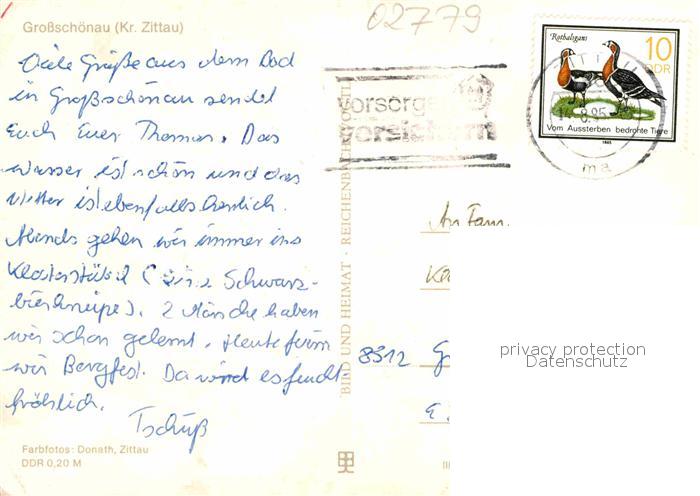 Großschönau (Kr. Zittau)
02779
Viele Grüße aus dem Bad
in Großschönau sendet
Euch Euer Thomas. Das
Wasser ist schön und das
Wetter ist ebenfalls herrlich.
Abends gehen wir immer ins
Klosterstübel (eine Schwarz-
bierkneipe). 2 Mänche haben
wir schon gelernt. Heute feiern
wir Bergfest. Da wird es feucht-
fröhlich.
Tschüß
Farbfotos: Donath, Zittau
DDR 0,20 M
BILD UND HEIMAT · REICHENBACH
vorsorge
versichern
Rothalsgans
10
DDR
Vom Aussterben bedrohte Tiere
1985
8.85
ma
An Fam.
8312
privacy protection
Datenschutz